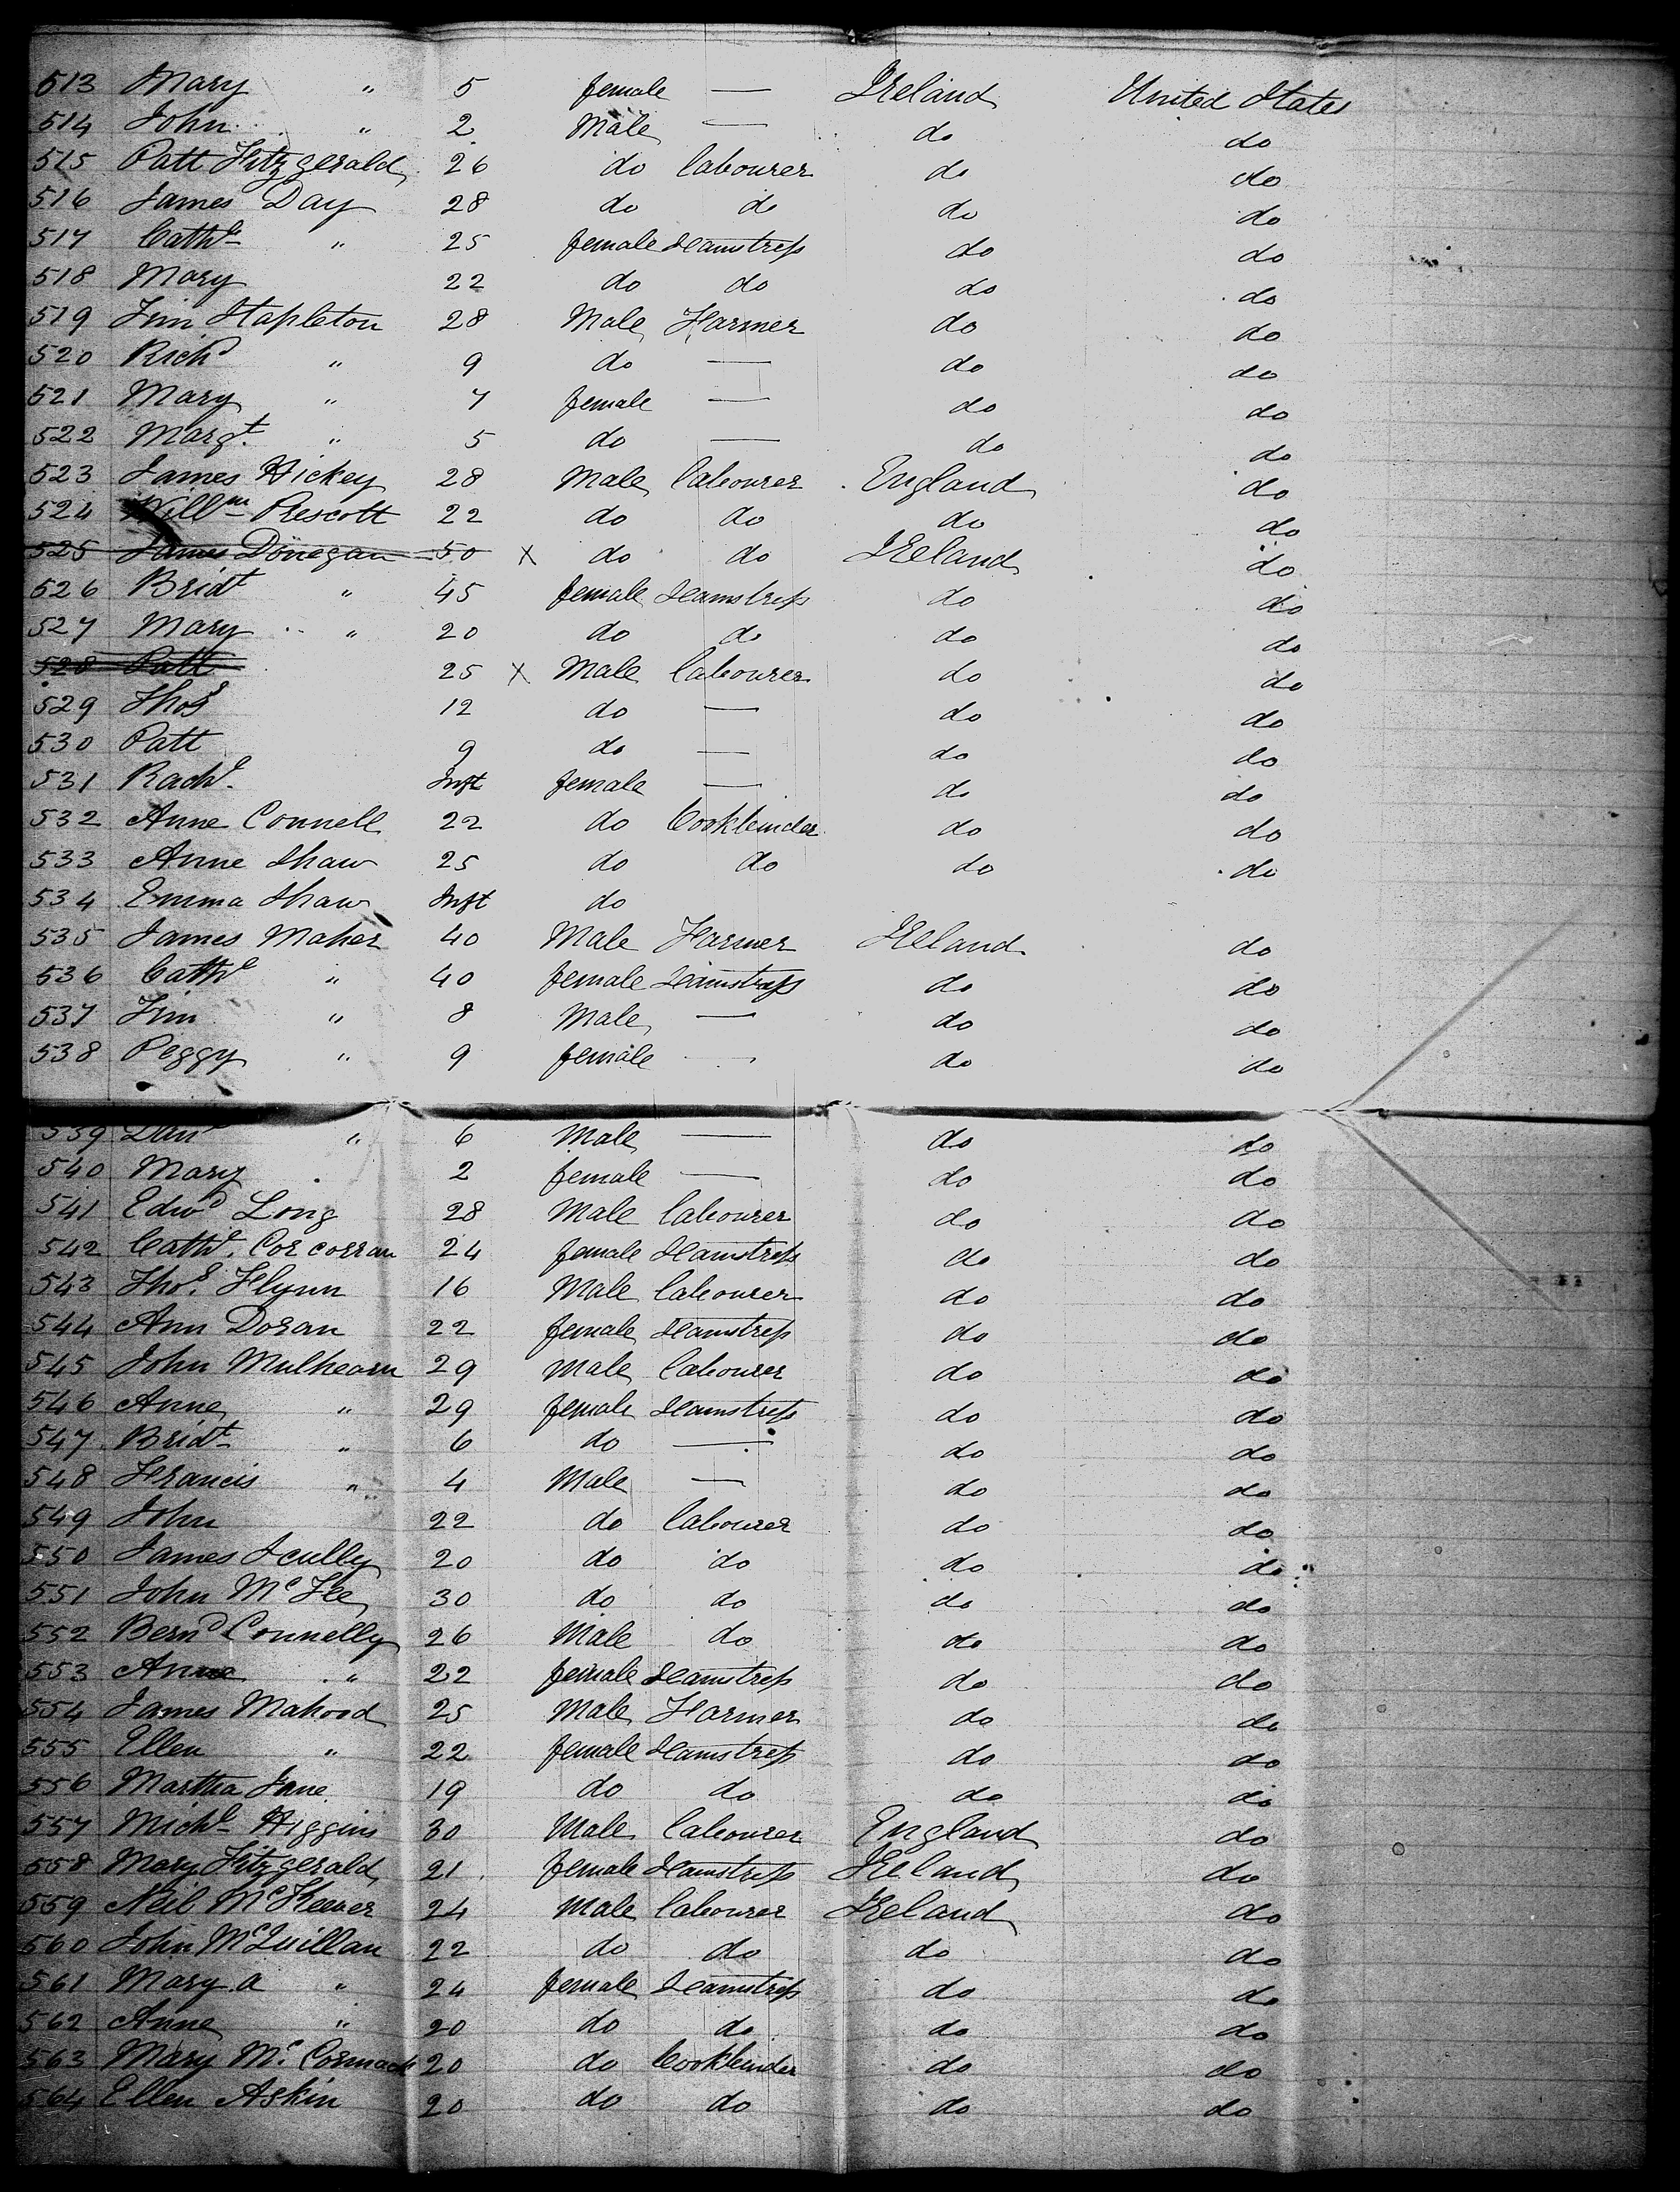 513 Mary " 5 female — Ireland United States
514 John " 2 Male — do do
515 Patt Fitzgerald 26 do labourer do do
516 James Day 28 do do do do
517 Cathe " 25 female Seamstress do do
518 Mary 22 do do do do
519 Jim Stapleton 28 Male Farmer do do
520 Richd " 9 do — do do
521 Mary " 7 female — do do
522 Margt. " 5 do — do do
523 James Hickey 28 Male labourer England do
524 Willm Prescott 22 do do do do
525 James Donegan 50 X do do Ireland do
526 Bridt " 45 female Seamstress do do
527 Mary " 20 do do do do
528 Patt 25 X Male labourer do do
529 Thos 12 do — do do
530 Patt 9 do — do do
531 Rachl. Inft female — do do
532 Anne Connell 22 do bookbinder do do
533 Anne Shaw 25 do do do do
534 Emma Shaw Inft do
535 James Maher 40 Male Farmer Ireland do
536 Cathe " 40 female Seamstress do do
537 Jim " 8 Male — do do
538 Peggy " 9 female — do do
539 Danl " 6 Male — do do
540 Mary 2 female — do do
541 Edwd Long 28 Male labourer do do
542 Cathe. Corcorran 24 female Seamstress do do
543 Thos. Flynn 16 Male labourer do do
544 Ann Doran 22 female Seamstress do do
545 John Mulhearn 29 Male labourer do do
546 Anne " 29 female Seamstress do do
547 Bridt " 6 do — do do
548 Francis " 4 Male — do do
549 John 22 do labourer do do
550 James Scully 20 do do do do
551 John McFee 30 do do do do
552 Bernd Connelly 26 Male do do do
553 Anne " 22 female Seamstress do do
554 James Mahood 25 Male Farmer do do
555 Ellen " 22 female Seamstress do do
556 Martha Jane 19 do do do do
557 Michl Higgins 30 Male labourer England do
558 Mary Fitzgerald 21 female Seamstress Ireland do
559 Neil McKeever 24 Male labourer Ireland do
560 John McQuillan 22 do do do do
561 Mary a " 24 female Seamstress do do
562 Anne " 20 do do do do
563 Mary Mc. Cormack 20 do bookbinder do do
564 Ellen Askin 20 do do do do